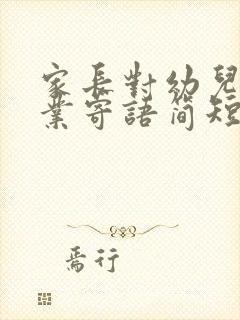 家長對幼兒
業寄語簡短
焉行